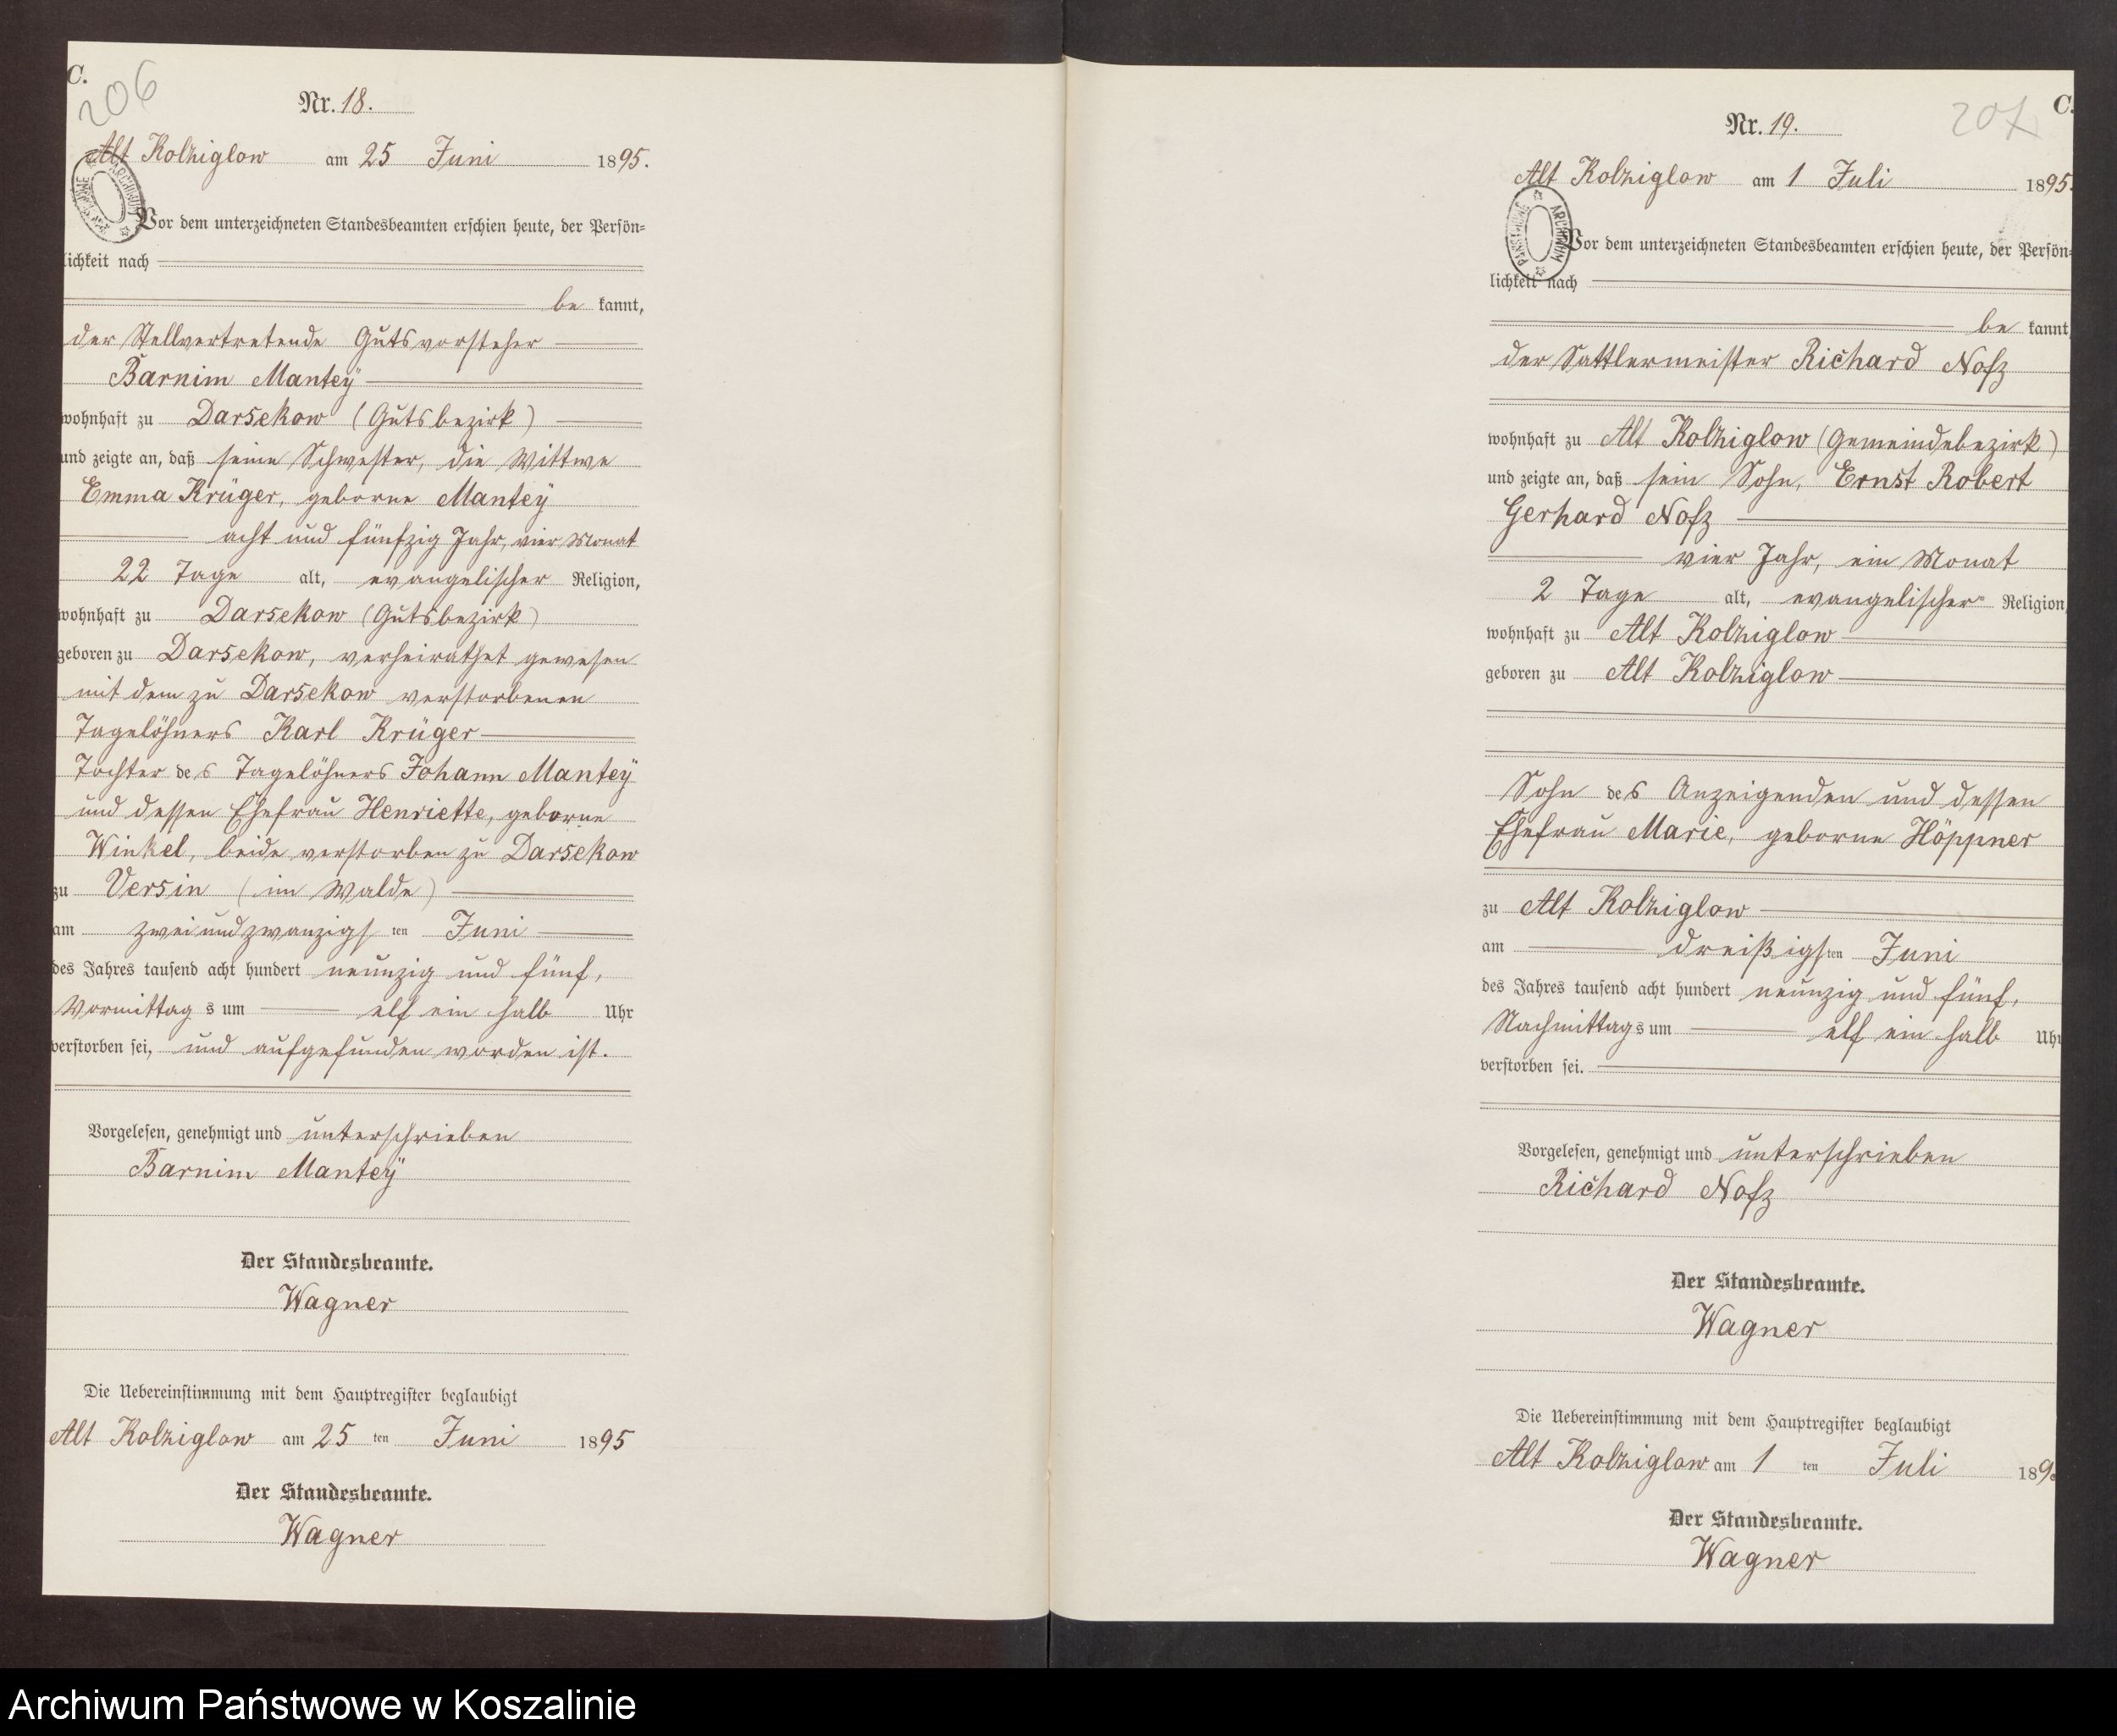 C.
206
Nr. 18.
Alt Kolziglow am 25 Juni 1895.
Vor dem unterzeichneten Standesbeamten erschien heute, der Persön=
lichkeit nach
be kannt,
der Stellvertretende Gutsvorsteher
Barnim Manteÿ
wohnhaft zu Darsekow (Gutsbezirk)
und zeigte an, daß seine Schwester, die Wittwe
Emma Krüger, geborne Manteÿ
acht und fünfzig Jahr, vier Monat
22 Tage alt, evangelischer Religion,
wohnhaft zu Darsekow (Gutsbezirk)
geboren zu Darsekow, verheirathet gewesen
mit dem zu Darsekow verstorbenen
Tagelöhners Karl Krüger
Tochter des Tagelöhners Johann Manteÿ
und dessen Ehefrau Henriette, geborne
Winkel, beide verstorben zu Darsekow
zu Versin (im Walde)
am zweiundzwanzigsten Juni
des Jahres tausend acht hundert neunzig und fünf,
Vormittags um elf ein halb Uhr
verstorben sei, und aufgefunden worden ist.
Vorgelesen, genehmigt und unterschrieben
Barnim Manteÿ
Der Standesbeamte.
Wagner
Die Uebereinstimmung mit dem Hauptregister beglaubigt
Alt Kolziglow am 25 ten Juni 1895
Der Standesbeamte.
Wagner
C.
207
Nr. 19.
Alt Kolziglow am 1 Juli 1895.
ARCHIWUM PAŃSTWOWE
Vor dem unterzeichneten Standesbeamten erschien heute, der Persön=
lichkeit nach
be kannt
der Sattlermeister Richard Nofz
wohnhaft zu Alt Kolziglow (Gemeindebezirk)
und zeigte an, daß sein Sohn, Ernst Robert
Gerhard Nofz
vier Jahr, ein Monat
2 Tage alt, evangelischer Religion,
wohnhaft zu Alt Kolziglow
geboren zu Alt Kolziglow
Sohn des Anzeigenden und dessen
Ehefrau Marie, geborne Höppner
zu Alt Kolziglow
am dreißigsten Juni
des Jahres tausend acht hundert neunzig und fünf,
Nachmittags um elf ein halb Uhr
verstorben sei.
Vorgelesen, genehmigt und unterschrieben
Richard Nofz
Der Standesbeamte.
Wagner
Die Uebereinstimmung mit dem Hauptregister beglaubigt
Alt Kolziglow am 1 ten Juli 189
Der Standesbeamte.
Wagner
Archiwum Państwowe w Koszalinie